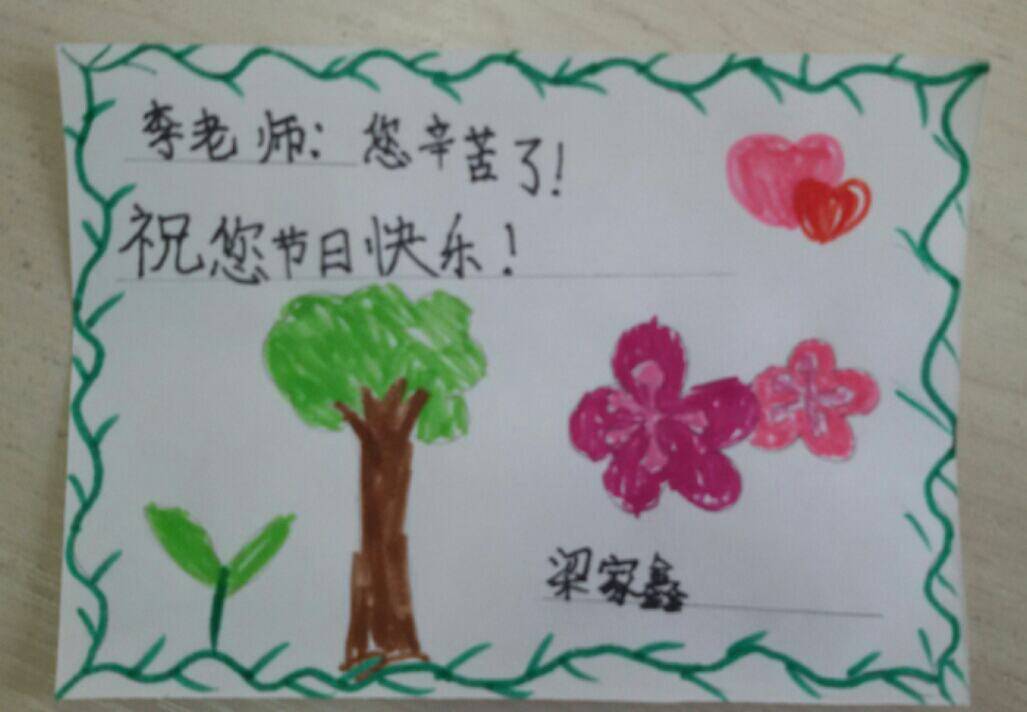 李老师：您辛苦了！
祝您节日快乐！
梁家鑫